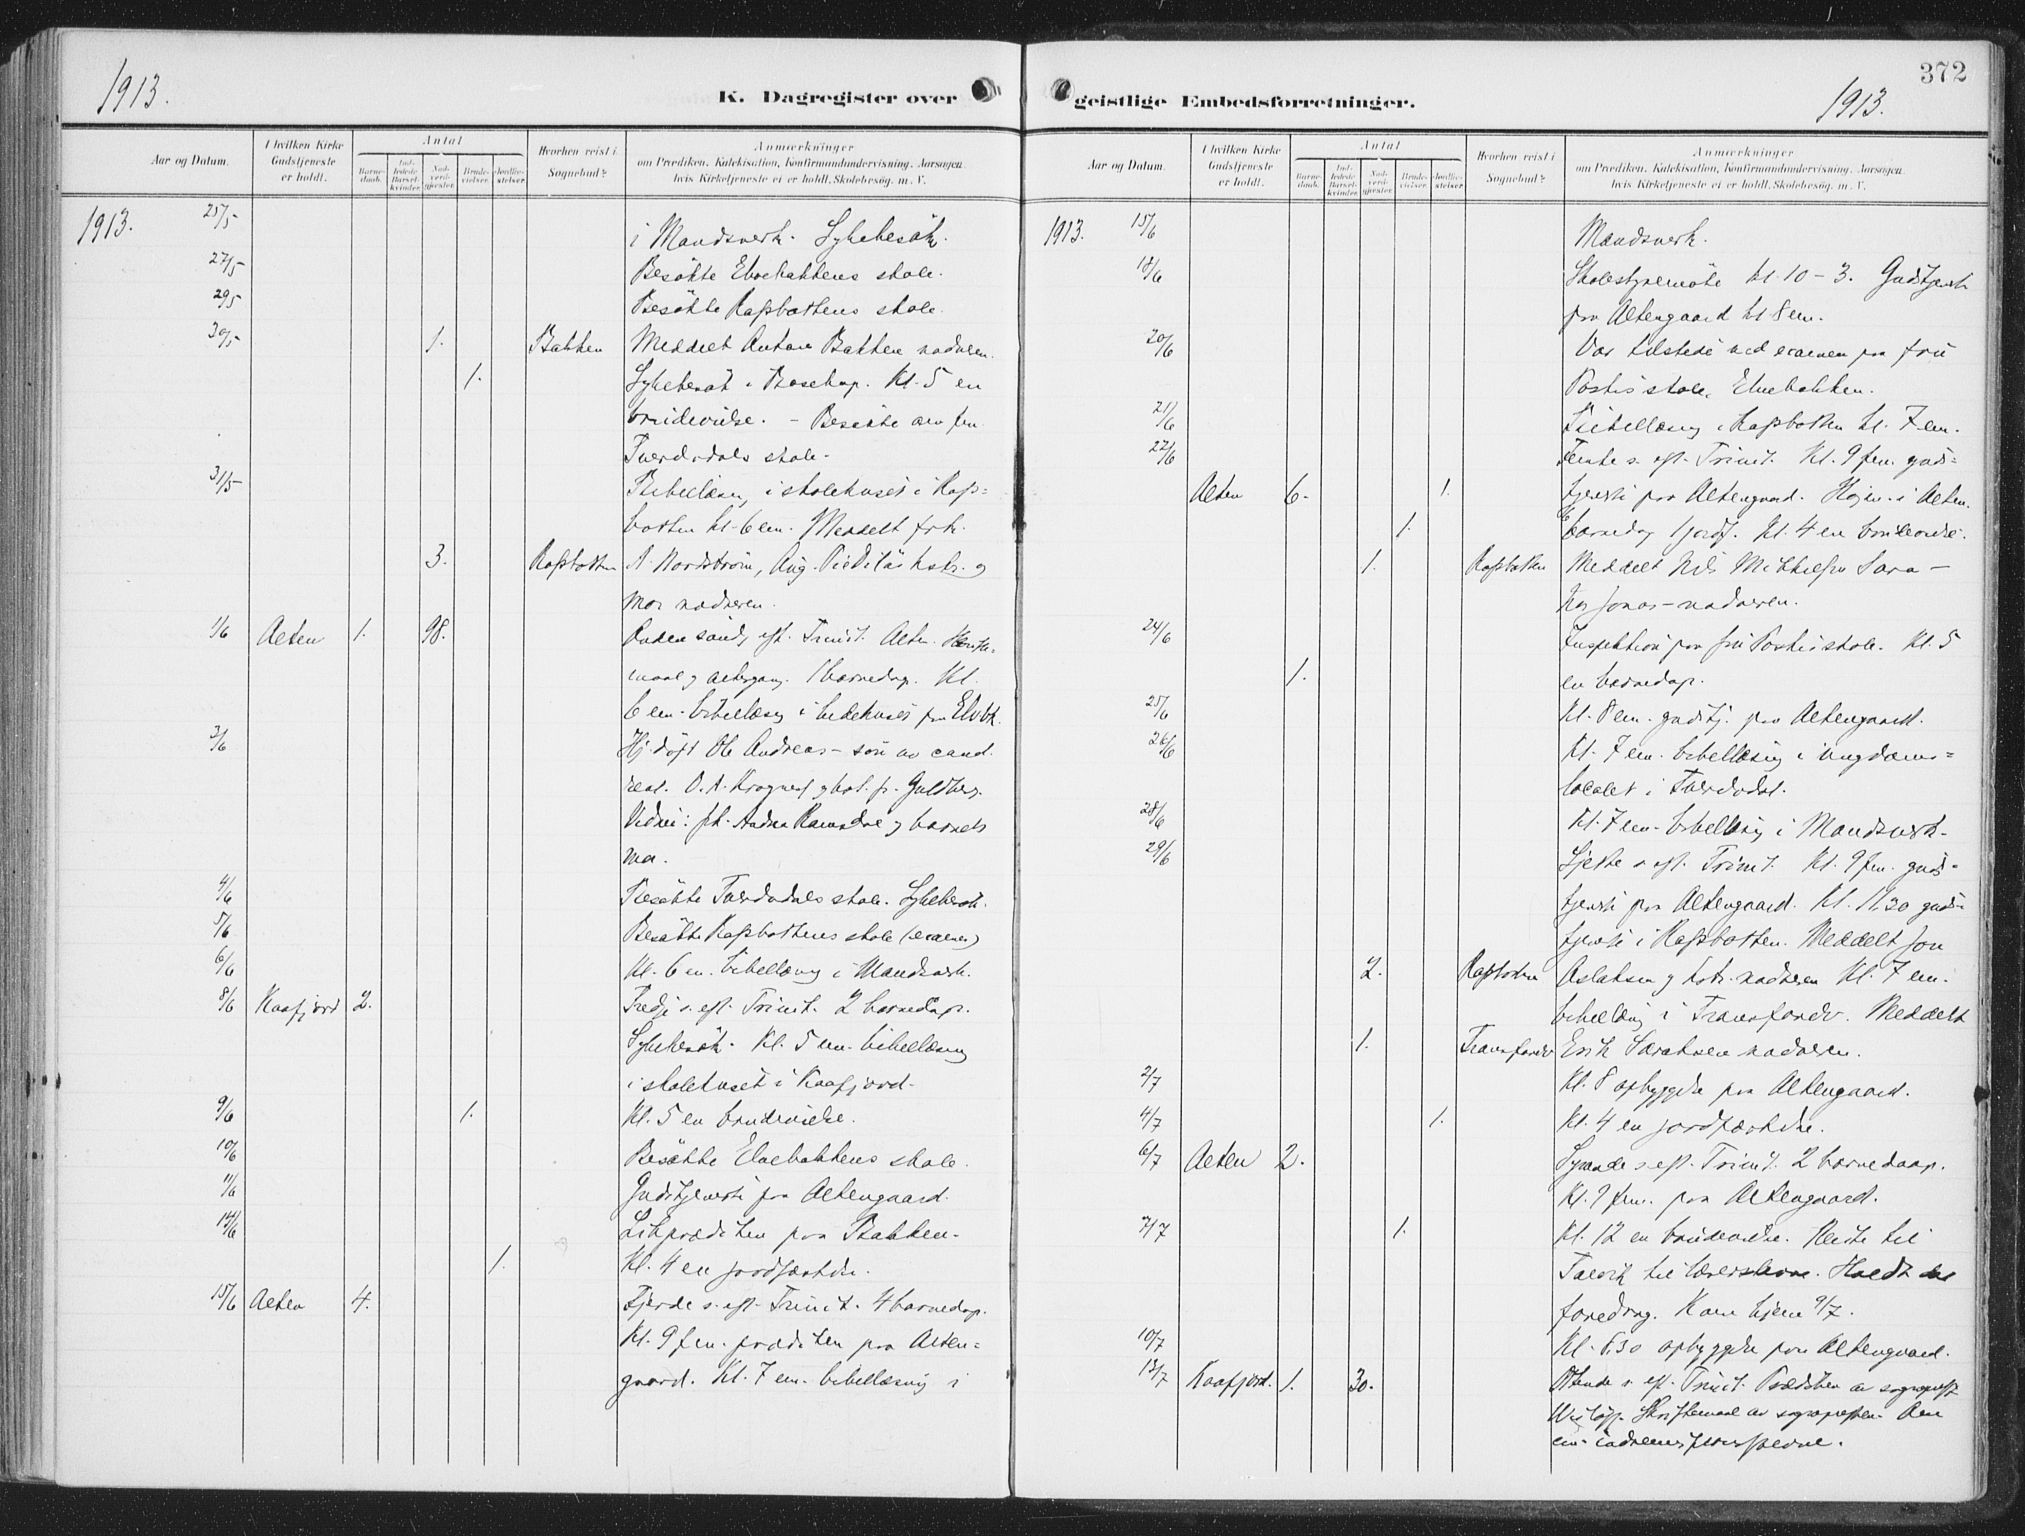 1913.
K. Dagregister over
Aar og Datum.
I hvilken Kirke Gudstjeneste er holdt.
Antal
Barne- daab.
Ind- ledede Barsel- kvinder.
Nad- verd- gjester.
Brude- vielser.
Jordfæ- stelser.
Hvorhen reist i Sognebud?
Anmærkninger
om Prædiken, Katekisation, Konfirmandundervisning, Aarsagen,
hvis Kirketjeneste ei er holdt, Skolebesøg, m. V.
1913. 25/5 i Mandsverk. Sykebesök.
27/5 Besökte Elvebakkens skole.
29/5 Besökte Rafsbottens skole.
30/5 1. Bakken Meddelt Anton Bakken nadveren.
1. Sykebesök i Bosekop. Kl. 5 en
brudevielse. – Besökte
Tverelvdals skole.
31/5 Bibellæsn. i skolehuset i Rafs=
botten kl. 6 em. Meddelt frk.
3. Rafsbotten A. Nordström, Aug. hstr. og
mor nadveren.
1/6 Alten 1. 98. Anden sönd. eft. Trinit. Alten. Skrifte-
maal og altergang. 1 barnedaap. Kl.
6 em. bibellæsn. i bedehuset paa Elvbk.
2/6 Hj. döpt Ole Andreas – sön av cand.
real. O. A. og hst. f. Guldberg.
Vidner: frk. Andrea Ramsdal og barnets
mor.
4/6 Besökte Tverelvdals skole. Sykebesök.
5/6 Besökte Rafsbottens skole (examen)
6/6 Kl. 6 em. bibellæsn. i Mandsverk.
8/6 Kaafjord 2. Tredje s. eft. Trinit. 2 barnedaap.
Sykebesök. Kl. 5 em. bibellæsning
i skolehuset i Kaafjord.
9/6 1. Kl. 5 en brudevielse.
10/6 Besökte Elvebakkens skole.
11/6 Gudstjeneste paa Altengaard.
14/6 Likprædiken paa Bakken.
1. Kl. 4 en jordfæstelse.
15/6 Alten 4. Fjerde s. eft. Trinit. 4 barnedaap.
Kl. 9 fm. prædiken paa Alten-
gaard. Kl. 7 em. bibellæsning i
372
geistlige Embedsforretninger.
1913.
Aar og Datum.
I hvilken Kirke Gudstjeneste er holdt.
Antal
Barne- daab.
Ind- ledede Barsel- kvinder.
Nad- verd- gjester.
Brude- vielser.
Jordfæ- stelser.
Hvorhen reist i Sognebud?
Anmærkninger
om Prædiken, Katekisation, Konfirmandundervisning, Aarsagen,
hvis Kirketjeneste ei er holdt, Skolebesøg, m. V.
1913. 15/6 Mandsverk.
18/6 Skolestyremöte kl. 10 – 3. Gudstjeneste
paa Altengaard kl 8 em.
20/6 Var tilstede ved examen paa fru
skole, Elvebakken.
21/6 Bibellæsn. i Rafsbotten kl. 7 em.
22/6 Femte s. eft. Trinit. Kl. 9 fm. guds=
Alten 6. 1. tjeneste paa Altengaard. Höjm. i Alten.
1. 6 barnedaap 1 jordf. Kl. 4 en brudevielse.
1. Rafsbotten Meddelt Nils Mikkelsen Sara –
nadveren.
24/6 Inspektion paa fru skole. Kl. 5
1. en barnedaap.
25/6 Kl. 8 em. gudstj. paa Altengaard.
26/6 Kl. 7 em. bibellæsning i ungdoms=
lokalet i Tverelvdal.
28/6 Kl. 7 em. bibellæsn. i Mandsverk.
29/6 Sjette s. eft. Trinit. Kl. 9 fm. guds=
tjeneste paa Altengaard. Kl. 11.30 guds=
tjeneste i Rafsbotten. Meddelt Jon
2. Rafsbotten Aslaksen og hstr. nadveren. Kl. 7 em.
bibellæsn. i Transfarelv. Meddelt
1. Transfarelv Erik Saraksen nadveren.
2/7 Kl. 8 opbyggelse paa Altengaard.
4/7 1. Kl. 4 en jordfæstelse.
6/7 Alten 2. Syvende s. eft. Trinit. 2 barnedaap.
Kl. 9 fm. paa Altengaard.
7/7 1. Kl. 12 en brudevielse. Reiste til
Talvik til lærerstevne. Holdt der
foredrag. Kom hjem 9/7.
10/7 Kl. 6.30 opbyggelse paa Altengaard.
13/7 Kaafjord. 1. 30. Ottende s. eft. Trinit. Prædiken av sogneprest
Skriftemaal av sognepresten.